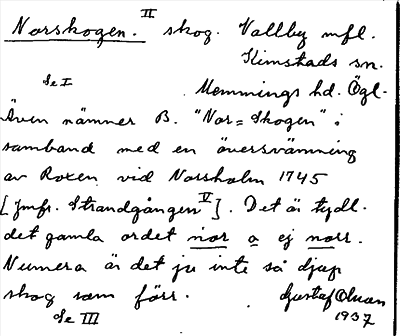 Norskogen. II skog. Vallby mfl.
Kimstads sn.
Se I
Memmings hd. Ögl.
Även nämner B. "Nor=Skogen" i
samband med en översvämning
av Roxen vid Norsholm 1745
[jmfr. Strandgången V]. Det är tydl.
det gamla ordet nor o ej norr.
Numera är det ju inte så djup
skog som förr. Gustaf Olsson
1937
Se III